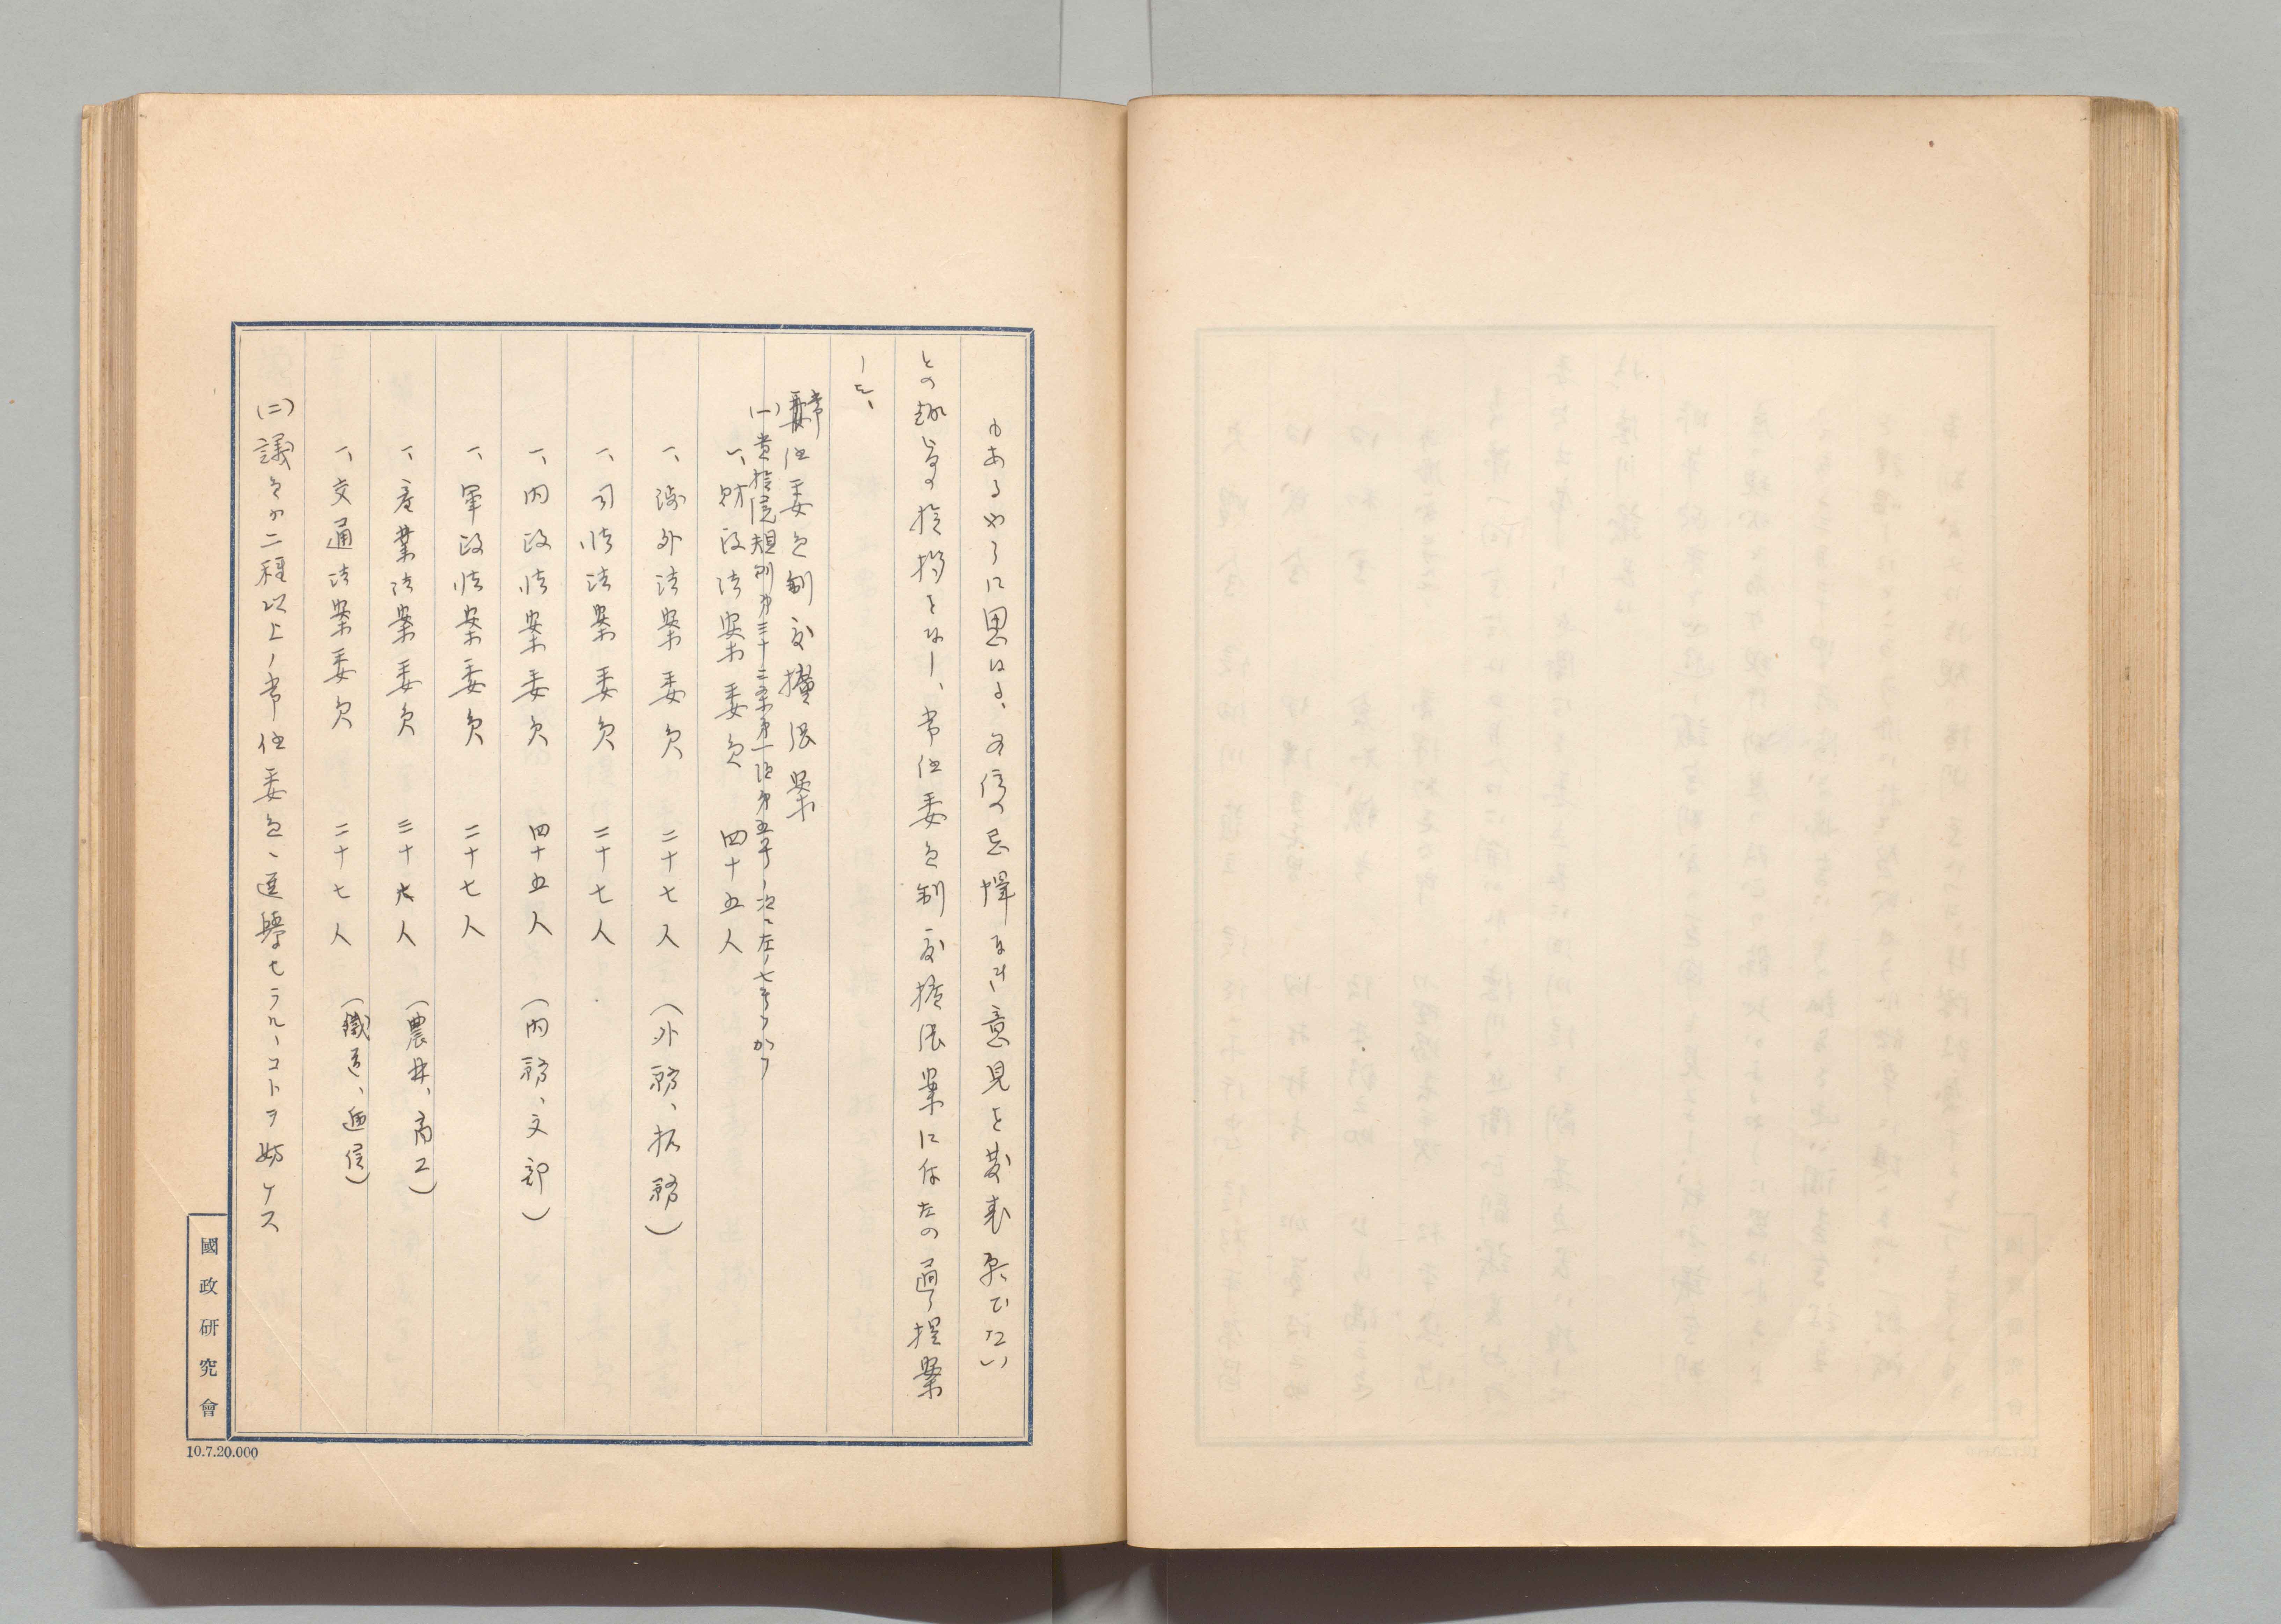 もあるやうに思はる、各位の忌憚なき意見を発表願ひたい
との趣旨の挨拶をなし、常任委員制度拡張案に付左の通り提案
した、
常任委員制度擴張案
(一)貴族院規則第三十二条第一項第五号ノ次ニ左ノ七号ヲ加フ
一、財政法案委員 四十五人
一、渉外法案委員 二十七人 (外務、拓務)
一、司法法案委員 二十七人
一、内政法案委員 四十五人 (内務、文部)
一、軍政法案委員 二十七人
一、産業法案委員 三十六人 (農林、商工)
一、交通法案委員 二十七人 (鐵道、逓信)
(二)議員ガ二種以上ノ常任委員ニ選擧セラルヽコトヲ妨ゲス
國政研究會
10.7.20.000